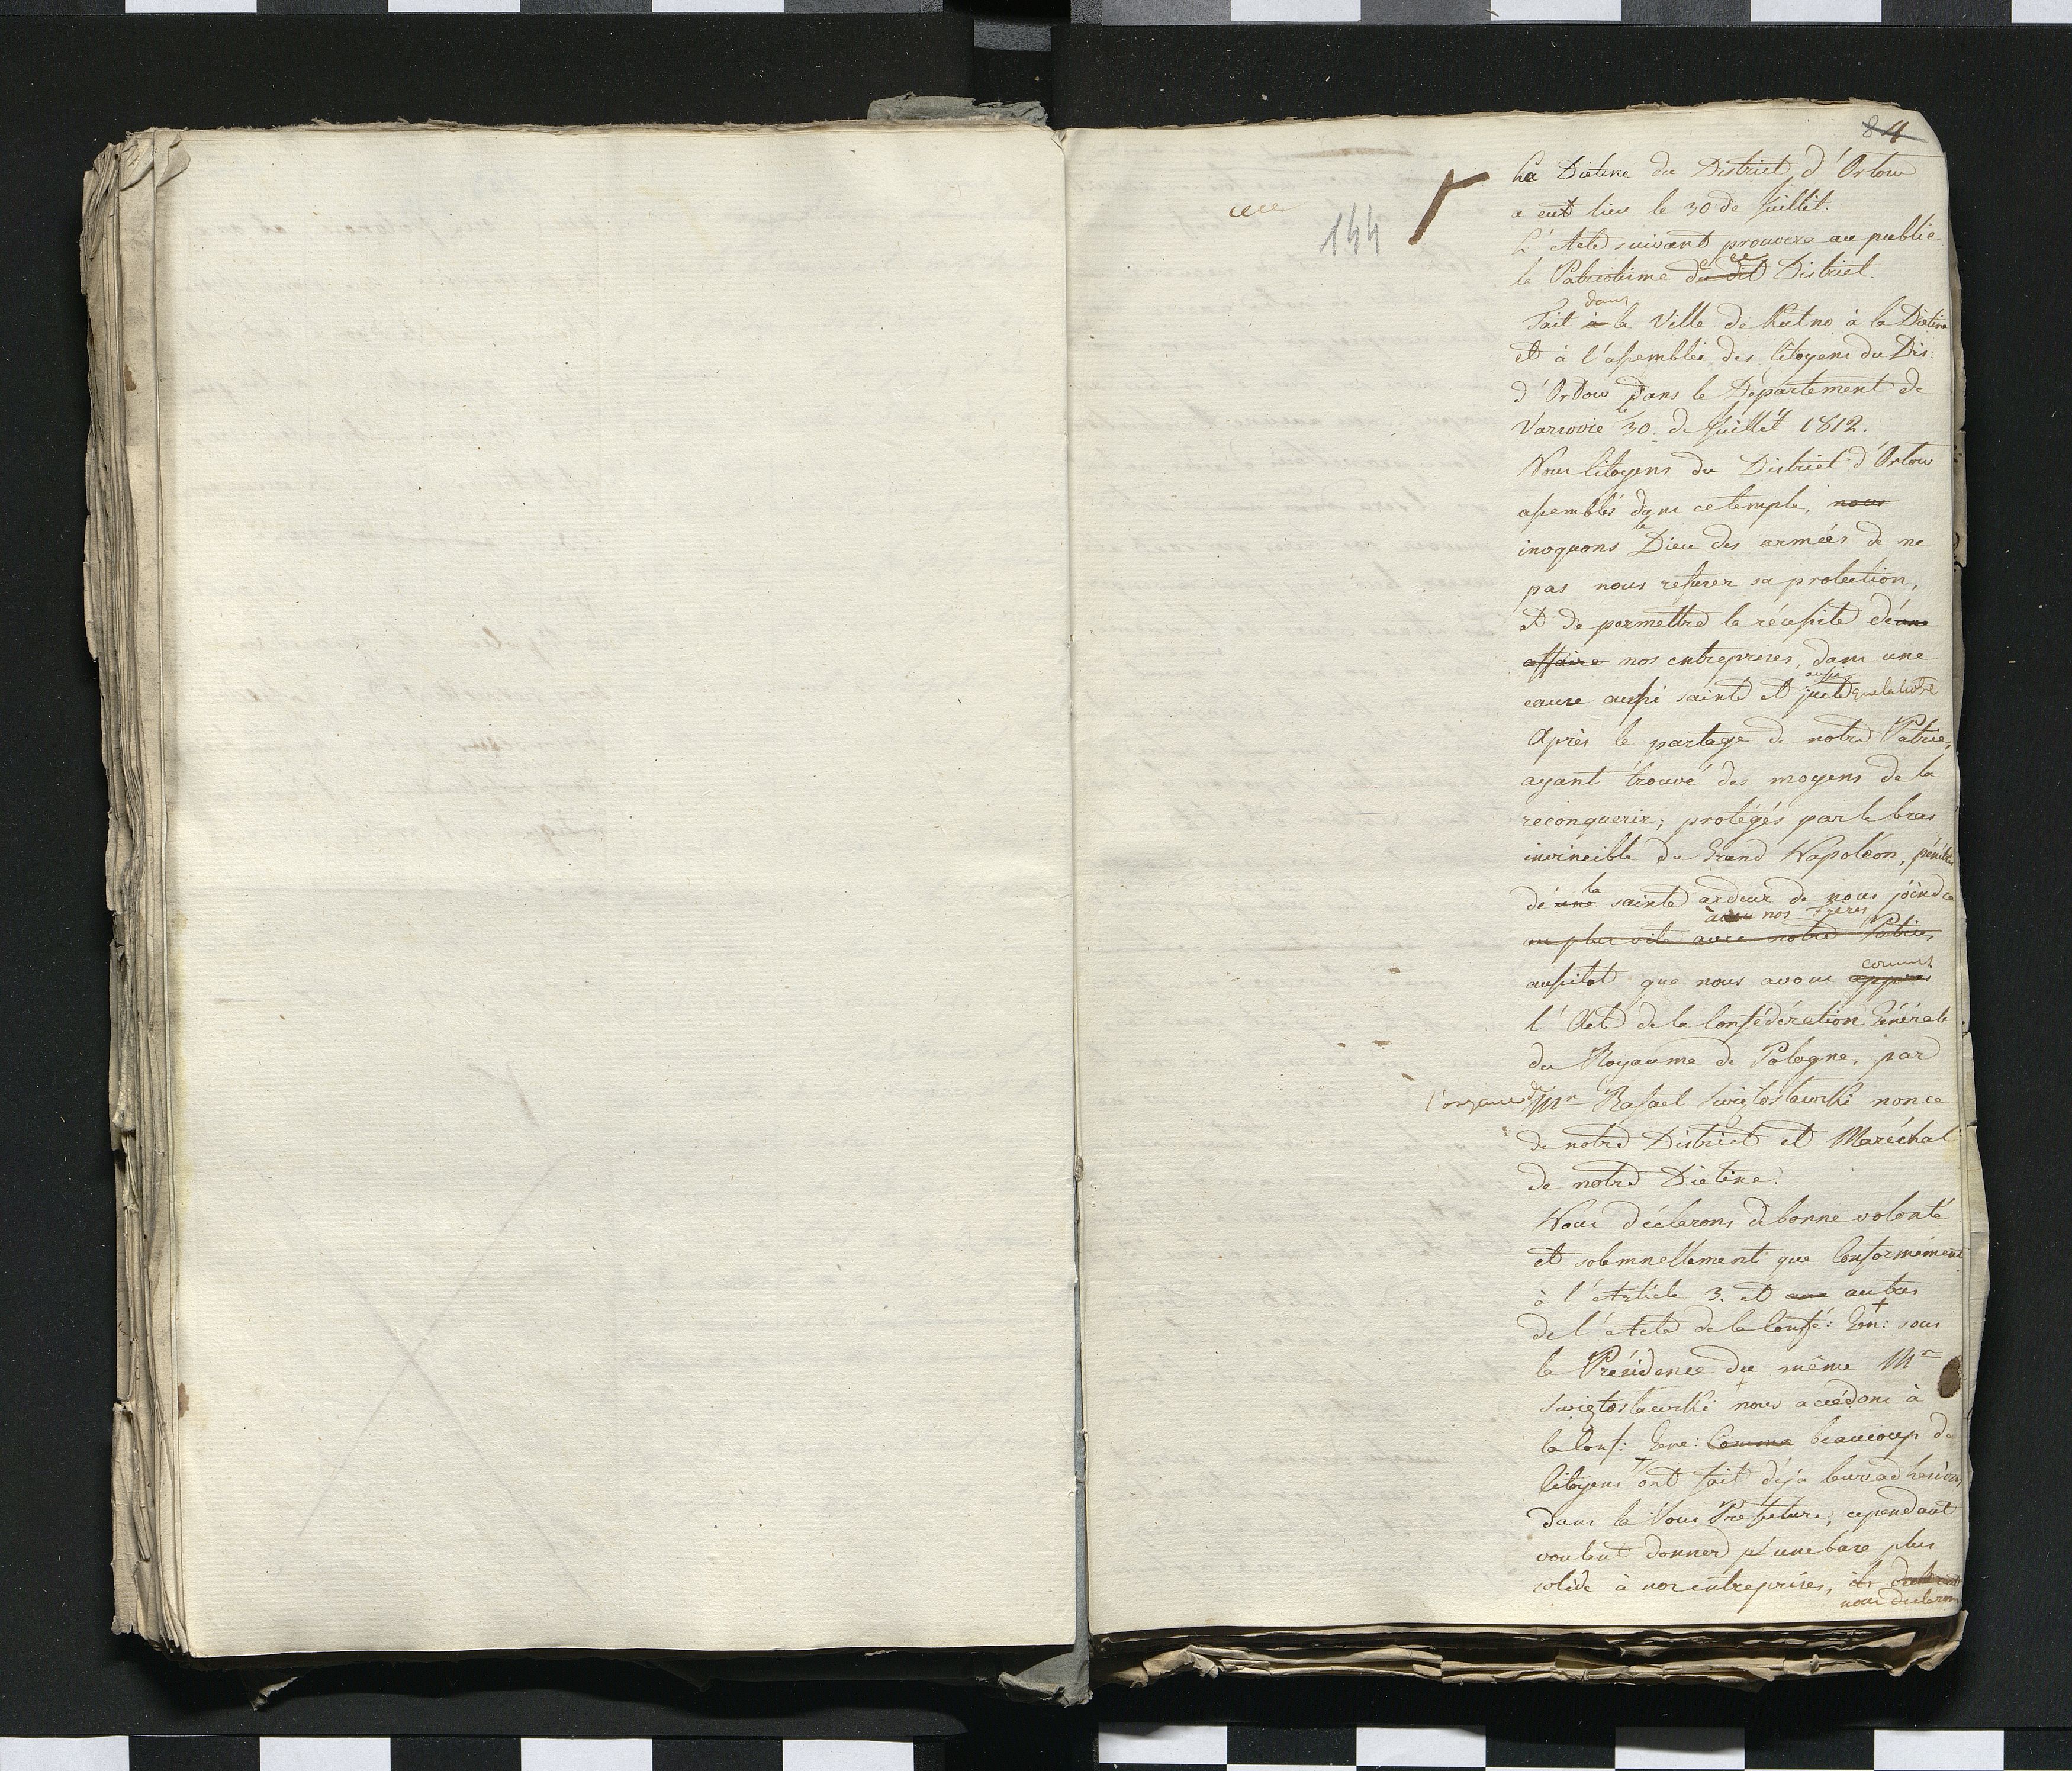 84
144
La Diètine du District d'Orlow
a eut lieu le 30 de Juillèt.
L'Acte suivant prouvera au public
le Patriotisme du dit District.
de ce
dans
Fait à la Ville de Kutno à la Diètine
et à l'assemblée des Citoyens du Dis:
d'Orlow dans le Département de
le
Varsovie 30. de Juillèt 1812.
Nous Citoyens du District d'Orlow
assemblés dans ce temple, nous
le
invoquons Dieu des armées de ne
pas nous refuser sa protection,
et de permèttre la réussite de une
affaire nos entreprises, dans une
aussi
cause aussi sainte et juste que la notre
Après le partage de notre Patrie,
ayant trouvé des moyens de la
reconquerir; protégés par le bras
invincible du Grand Napoléon, pénétrés
la
de une sainte ardeur de nous joindre
à nos Frères
au plus vite avec notre Patrie,
connus
aussitot que nous avons appris
l'Acte de la Conféderation Générale
du Royaume de Pologne, par
l'organe de Mr Rafael Swiętosławski nonce
de notre District et Maréchal
de notre Diètine.
Nous déclarons à bonne volonté
et solemnellement que Conformément
à l'Article 3. et aux autres
de l'Acte de la Confé: Gén: sous
la Présidence du même Mr
Swiętosławski nous accédons à
la Conf: Gene: Comme beaucoup de
Citoyens ont fait déja leur adhesions
dans la Sous Prefeture, cependant
voulant donner une base plus
solide à nos entreprises, ils declarent
nous declarons